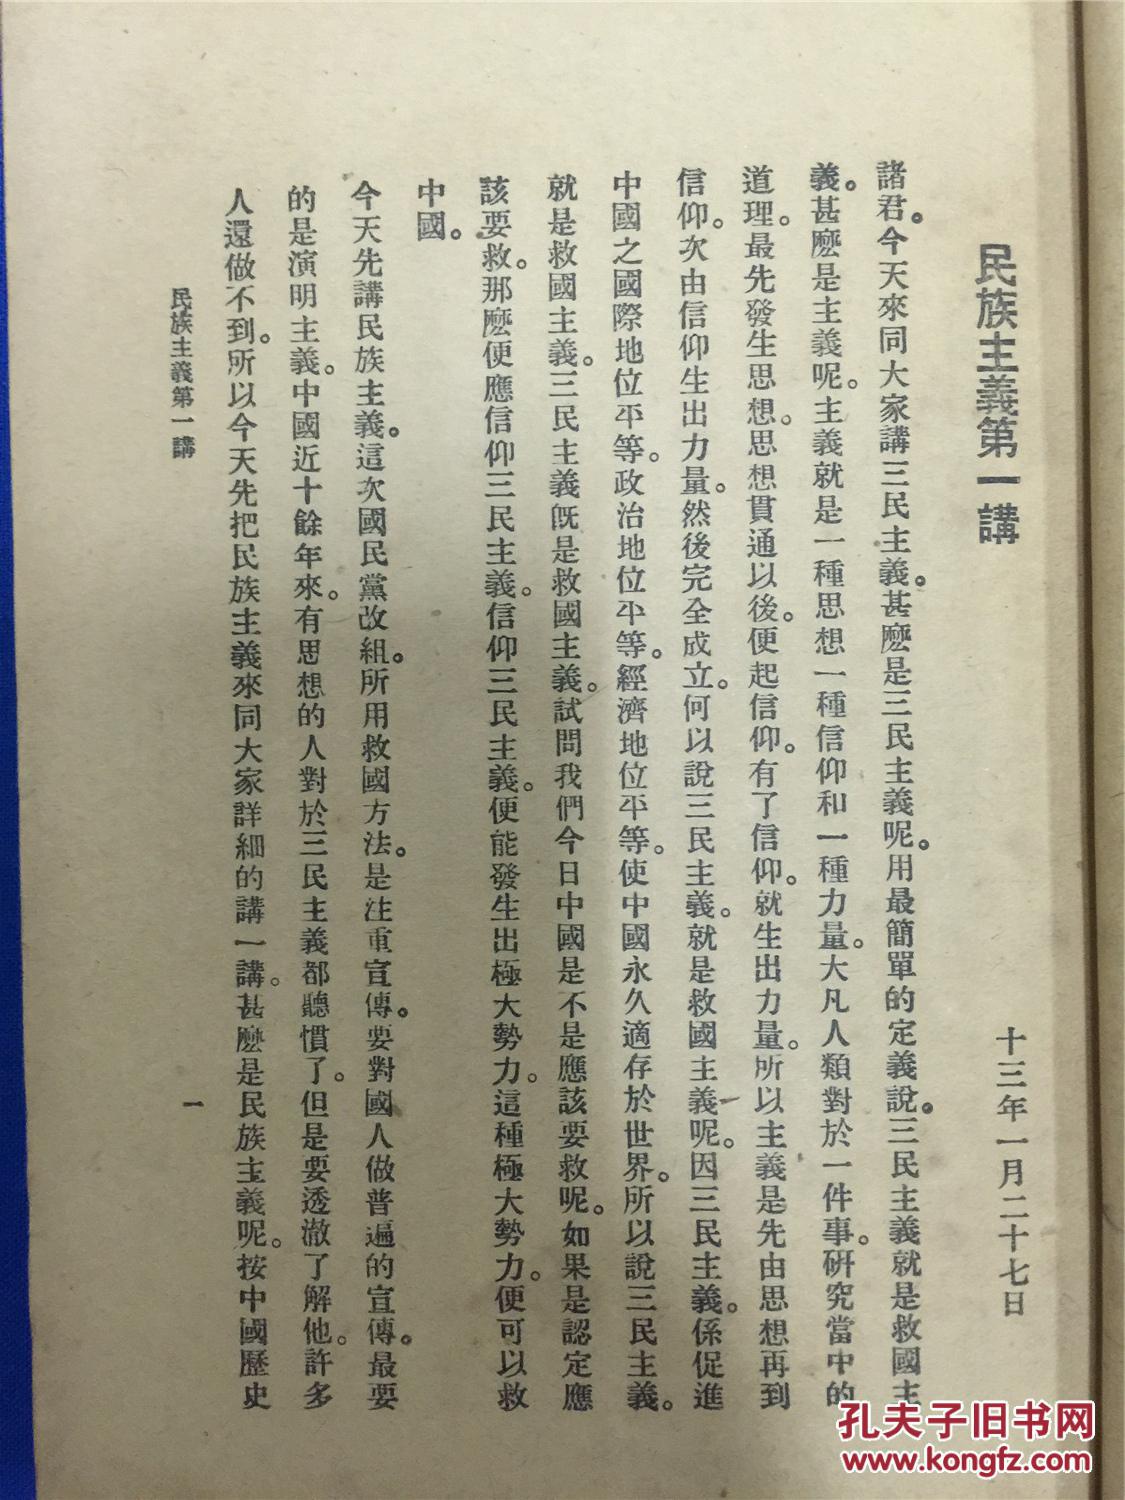 民族主義第一講
十三年一月二十七日
諸君。今天來同大家講三民主義。甚麼是三民主義呢。用最簡單的定義說。三民主義就是救國主
義。甚麼是主義呢。主義就是一種思想一種信仰和一種力量。大凡人類對於一件事。研究當中的
道理。最先發生思想。思想貫通以後。便起信仰。有了信仰。就生出力量。所以主義是先由思想再到
信仰。次由信仰生出力量。然後完全成立。何以說三民主義。就是救國主義呢。因三民主義。係促進
中國之國際地位平等。政治地位平等。經濟地位平等。使中國永久適存於世界。所以說三民主義。
就是救國主義。三民主義既是救國主義。試問我們今日中國是不是應該要救呢。如果是認定應
該要救。那麼便應信仰三民主義。信仰三民主義。便能發生出極大勢力。這種極大勢力。便可以救
中國。
今天先講民族主義。這次國民黨改組。所用救國方法。是注重宣傳。要對國人做普遍的宣傳。最要
的是演明主義。中國近十餘年來。有思想的人對於三民主義都聽慣了。但是要透澈了解他。許多
人還做不到。所以今天先把民族主義來同大家詳細的講一講。甚麼是民族主義呢。按中國歷史
民族主義第一講
一
孔夫子旧书网
www.kongfz.com